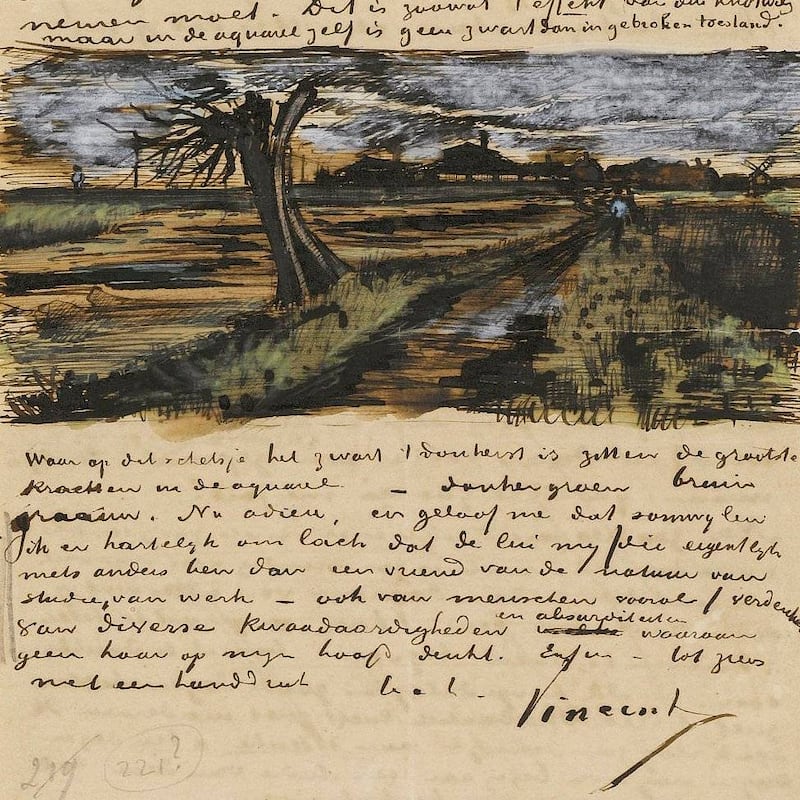 nemen moet. Dit is zoowat 't effekt van den knotwilg
maar in de aquarel zelf is geen zwart dan in gebroken toestand.
Waar op dit schetsje het zwart 't donkerst is zitten de grootste
krachten in de aquarel – donkergroen bruin
graauw. Nu adieu, en geloof me dat somwylen
ik er hartelyk om lach dat de lui my /die eigentlyk
niets anders ben dan een vriend van de natuur van
studie, van werk – ook van menschen vooral/ verdenken
van diverse kwaadaardigheden en absurditeiten waaraan
geen haar op myn hoofd denkt. Enfin – tot ziens
met een handdruk b. à t.
Vincent
219 221?